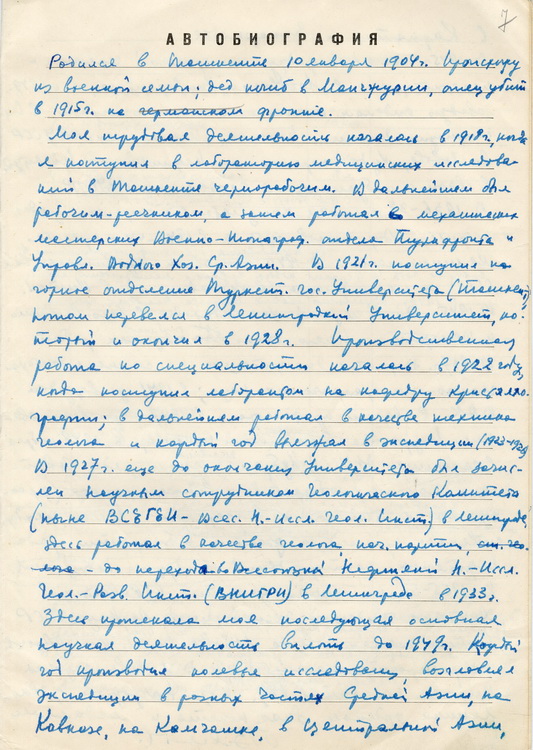 7
АВТОБИОГРАФИЯ
Родился в Ташкенте 10 января 1904г. Происхожу
из военной семьи; дед погиб в Манчжурии, отец убит
в 1915г. на германском фронте.
Моя трудовая деятельность началась в 1918г, когда
я поступил в лабораторию медицинских исследова-
ний в Ташкенте чернорабочим. В дальнейшем был
рабочим-реечником, а затем работал в механических
мастерских Военно-Топограф. отдела Туркфронта и
Управл. Водного Хоз. Ср. Азии. В 1921г. поступил на
горное отделение Туркест. гос. Университета (Ташкент),
потом перевелся в Ленинградский Университет, ко-
торый и окончил в 1928г. Производственная
работа по специальности началась в 1922 году,
когда поступил лаборантом на кафедру Кристалло-
графии; в дальнейшем работал в качестве техника
геолога и каждый год выезжал в экспедиции (1923-1926)
В 1927г. еще до окончания Университета был зачис-
лен научным сотрудником Геологического Комитета
(ныне ВСЕГЕИ - Всес. Н.-Иссл. Геол. Инст.) в Ленинграде,
здесь работал в качестве геолога, нач. партии, ст. гео-
лога - до перехода во Всесоюзный Нефтяной Н.-Иссл.
Геол.-Разв. Инст. (ВНИГРИ) в Ленинграде в 1933г.
Здесь протекала моя последующая основная
научная деятельность вплоть до 1949г. Каждый
год производил полевые исследования, возглавлял
экспедиции в разных частях Средней Азии, на
Кавказе, на Камчатке, в Центральной Азии,